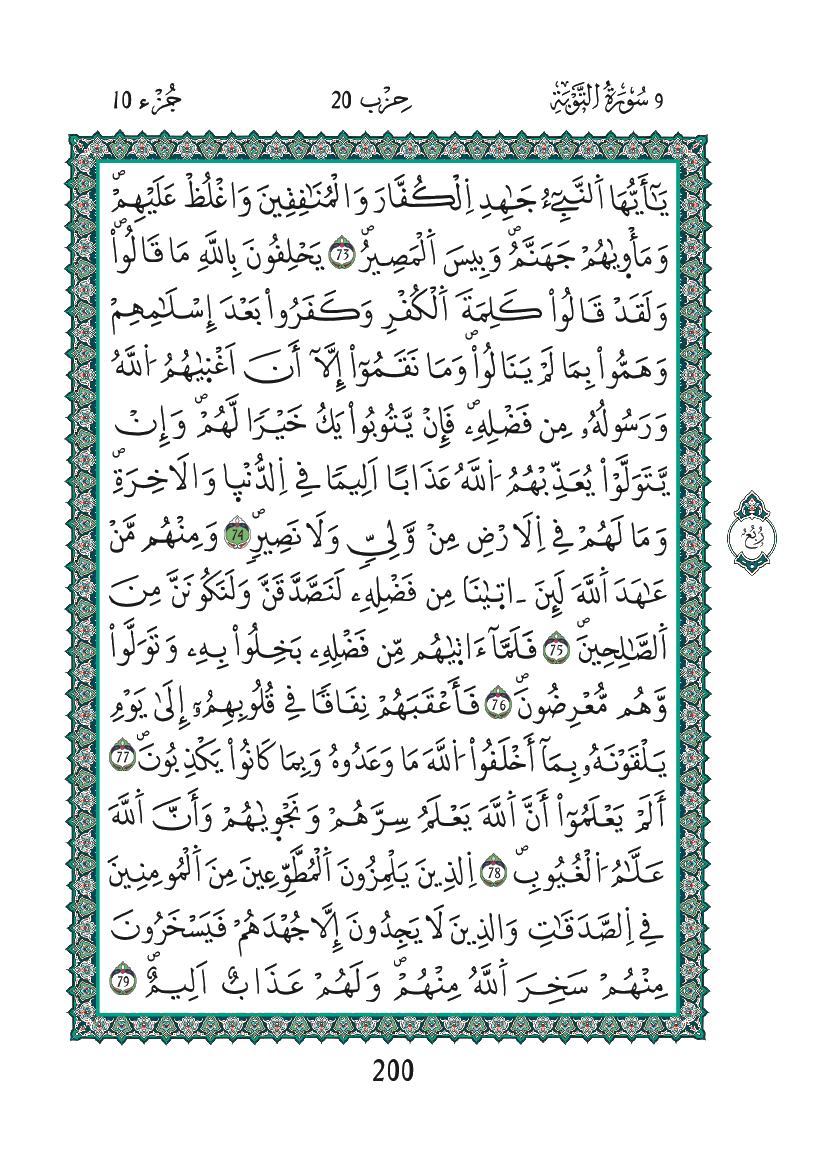 9 سُورَةُ التَّوْبَةِ حِزْب 20 جُزْء 10
يَٰٓأَيُّهَا اَ۬لنَّبِيٓءُ جَٰهِدِ اِ۬لْكُفَّارَ وَالْمُنَٰفِقِينَ وَاغْلُظْ عَلَيْهِمْۖ
وَمَأْو۪يٰهُمْ جَهَنَّمُۖ وَبِيسَ اَ۬لْمَصِيرُۖ 73 يَحْلِفُونَ بِاللَّهِ مَا قَالُواْۖ
وَلَقَدْ قَالُواْ كَلِمَةَ اَ۬لْكُفْرِ وَكَفَرُواْ بَعْدَ إِسْلَٰمِهِمْ
وَهَمُّواْ بِمَا لَمْ يَنَالُواْۖ وَمَا نَقَمُوٓاْ إِلَّآ أَنَ اَغْن۪يٰهُمُ اُ۬للَّهُ
وَرَسُولُهُۥ مِن فَضْلِهِۦۖ فَإِنْ يَّتُوبُواْ يَكُ خَيْرٗا لَّهُمْۖ وَإِنْ
يَّتَوَلَّوْاْ يُعَذِّبْهُمُ اُ۬للَّهُ عَذَابًا اَلِيمٗا فِي اِ۬لدُّنْي۪ا وَالَاخِرَةِۖ
وَمَا لَهُمْ فِي اِ۬لَارْضِ مِنْ وَّلِيّٖ وَلَا نَصِيرٖۖ 74 وَمِنْهُم مَّنْ
عَٰهَدَ اَ۬للَّهَ لَئِنَ ـات۪يٰنَا مِن فَضْلِهِۦ لَنَصَّدَّقَنَّ وَلَنَكُونَنَّ مِنَ
اَ۬لصَّٰلِحِينَۖ 75 فَلَمَّآ ءَات۪يٰهُم مِّن فَضْلِهِۦ بَخِلُواْ بِهِۦ وَتَوَلَّواْ
وَّهُم مُّعْرِضُونَۖ 76 فَأَعْقَبَهُمْ نِفَاقٗا فِي قُلُوبِهِمُۥٓ إِلَىٰ يَوْمِ
يَلْقَوْنَهُۥ بِمَآ أَخْلَفُواْ اُ۬للَّهَ مَا وَعَدُوهُ وَبِمَا كَانُواْ يَكْذِبُونَۖ 77
أَلَمْ يَعْلَمُوٓاْ أَنَّ اَ۬للَّهَ يَعْلَمُ سِرَّهُمْ وَنَجْو۪يٰهُمْ وَأَنَّ اَ۬للَّهَ
عَلَّٰمُ اُ۬لْغُيُوبِۖ 78 اِ۬لذِينَ يَلْمِزُونَ اَ۬لْمُطَّوِّعِينَ مِنَ اَ۬لْمُومِنِينَ
فِي اِ۬لصَّدَقَٰتِ وَالذِينَ لَا يَجِدُونَ إِلَّا جُهْدَهُمْ فَيَسْخَرُونَ
مِنْهُمْ سَخِرَ اَ۬للَّهُ مِنْهُمْۖ وَلَهُمْ عَذَابٌ اَلِيمٌۖ 79
رُبُع
200